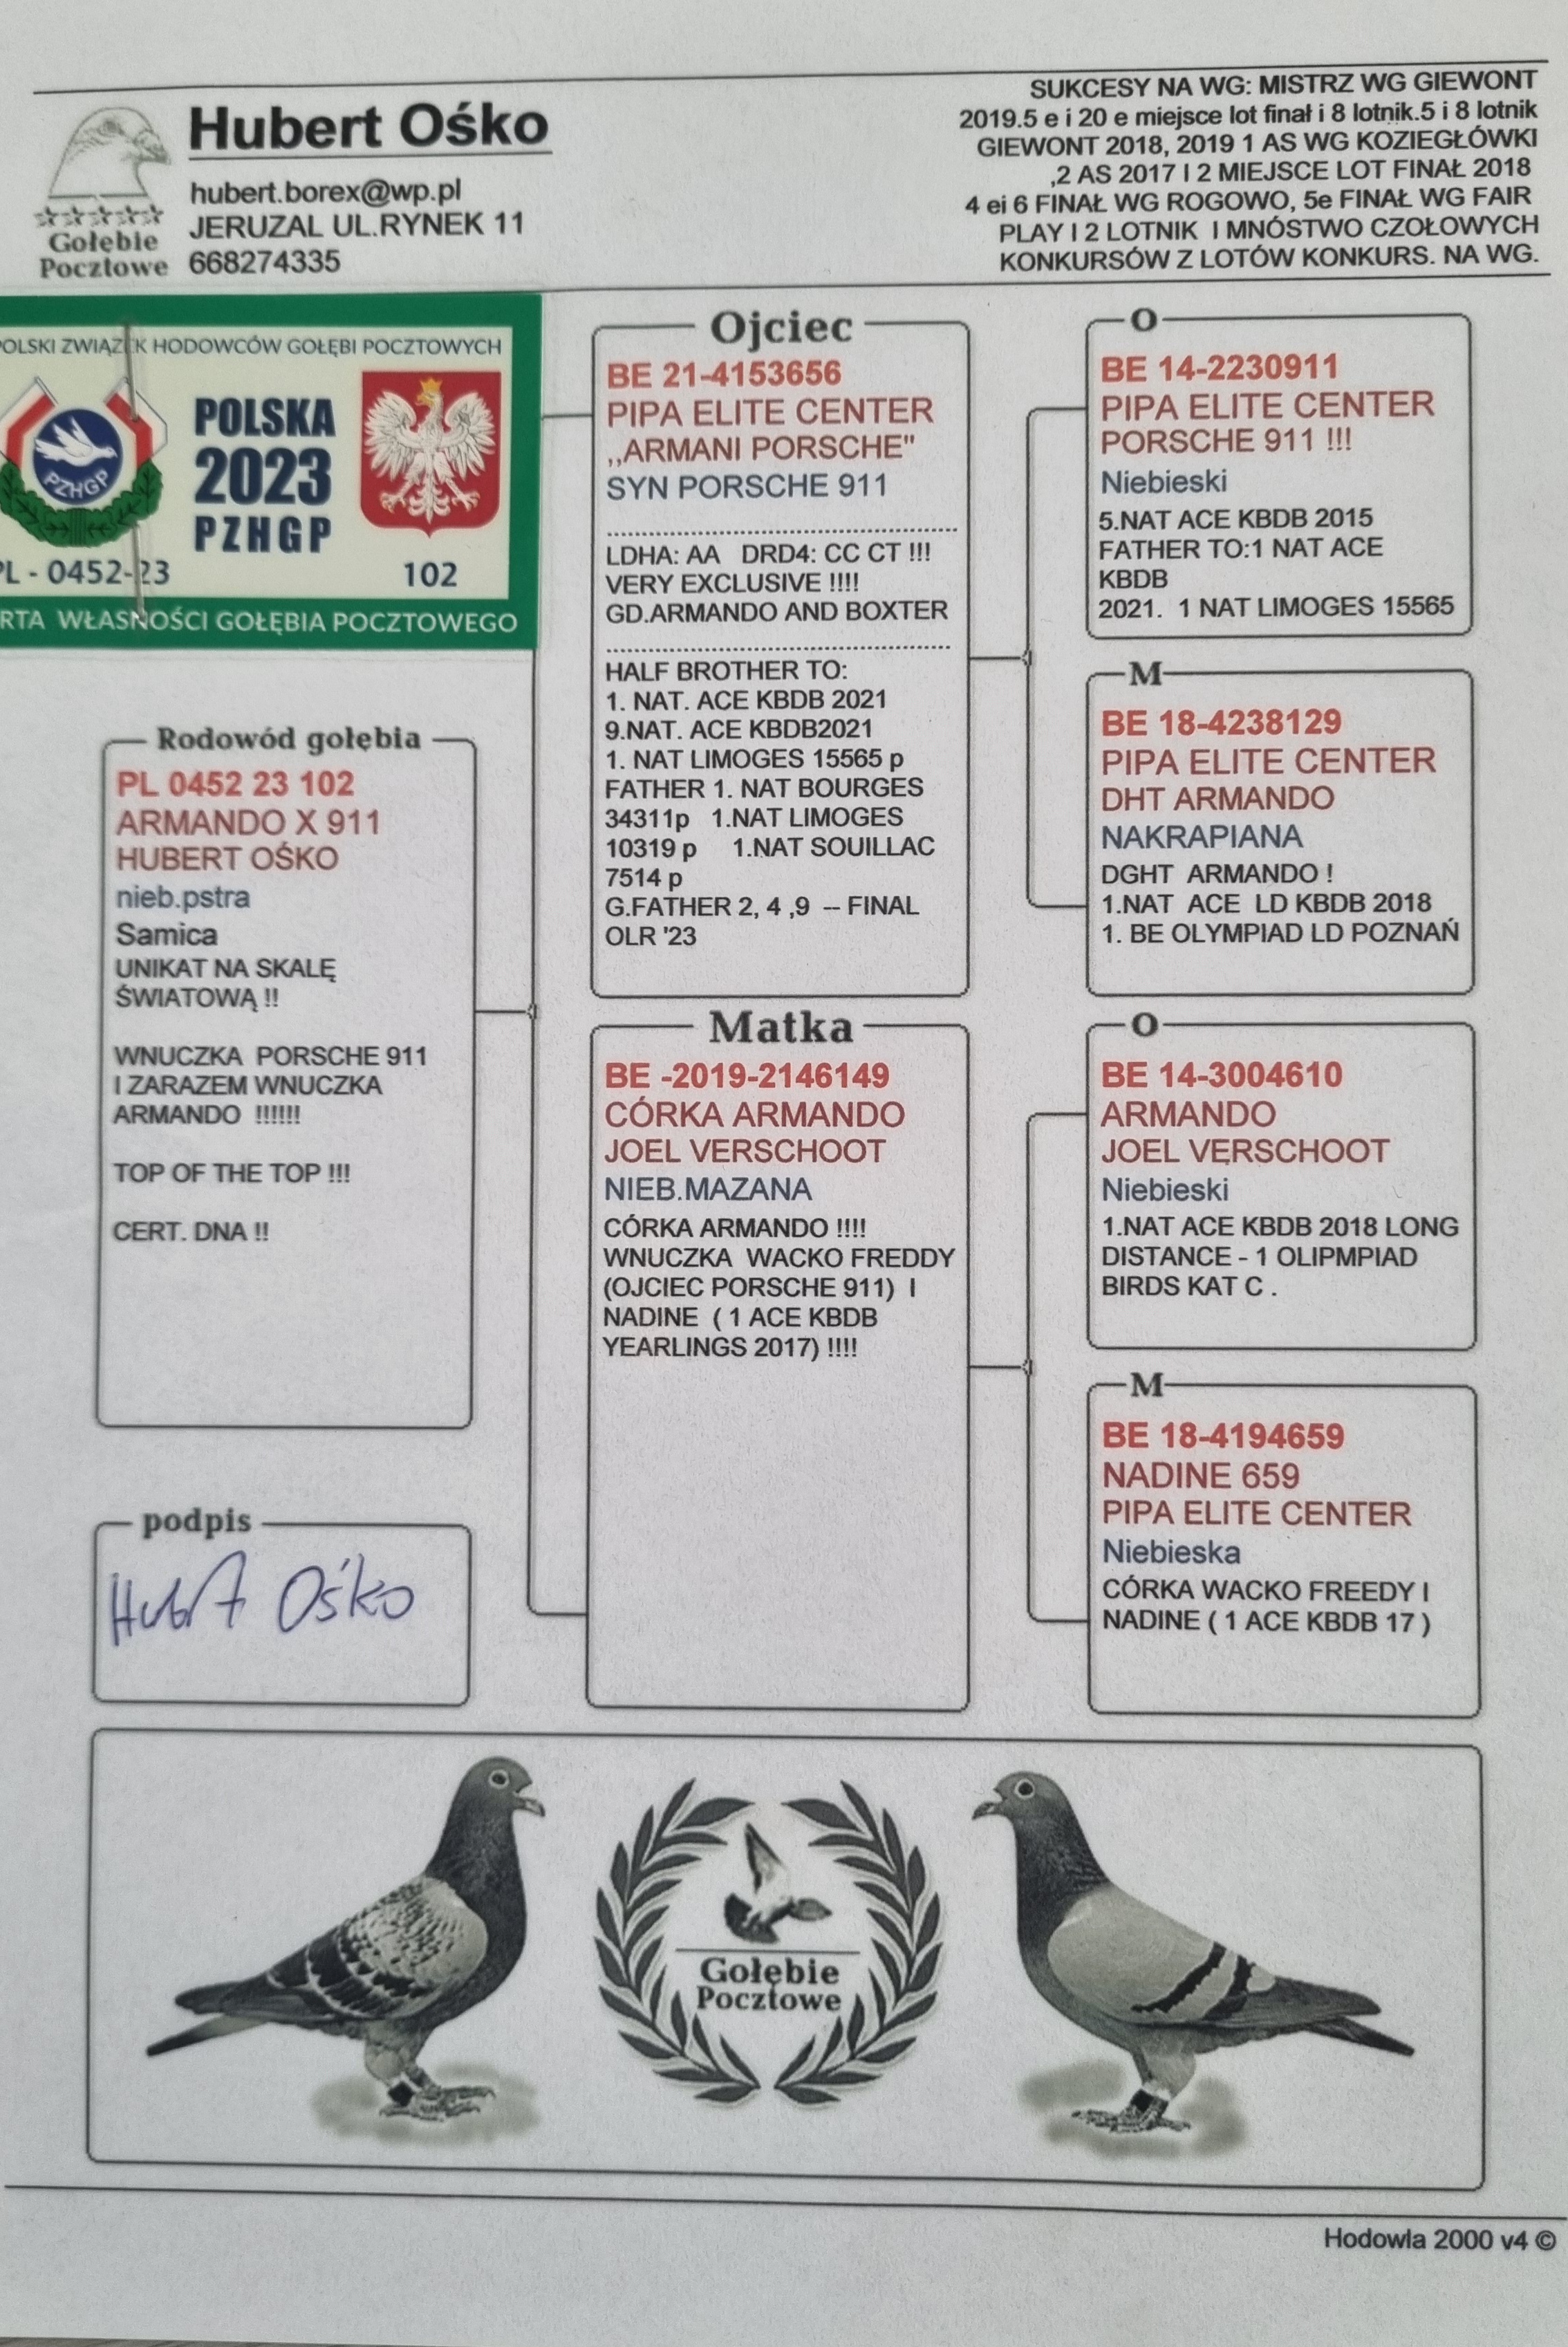 Hubert Ośko
hubert.borex@wp.pl
JERUZAL UL.RYNEK 11
668274335
Gołębie
Pocztowe
SUKCESY NA WG: MISTRZ WG GIEWONT
2019.5 e i 20 e miejsce lot finał i 8 lotnik.5 i 8 lotnik
GIEWONT 2018, 2019 1 AS WG KOZIEGŁÓWKI
,2 AS 2017 I 2 MIEJSCE LOT FINAŁ 2018
4 ei 6 FINAŁ WG ROGOWO, 5e FINAŁ WG FAIR
PLAY I 2 LOTNIK I MNÓSTWO CZOŁOWYCH
KONKURSÓW Z LOTÓW KONKURS. NA WG.
POLSKI ZWIĄZEK HODOWCÓW GOŁĘBI POCZTOWYCH
PZHGP
POLSKA
2023
PZHGP
PL - 0452-23 102
RTA WŁASNOŚCI GOŁĘBIA POCZTOWEGO
Rodowód gołębia
PL 0452 23 102
ARMANDO X 911
HUBERT OŚKO
nieb.pstra
Samica
UNIKAT NA SKALĘ
ŚWIATOWĄ !!
WNUCZKA PORSCHE 911
I ZARAZEM WNUCZKA
ARMANDO !!!!!!
TOP OF THE TOP !!!
CERT. DNA !!
podpis
Hubert Ośko
Ojciec
BE 21-4153656
PIPA ELITE CENTER
,,ARMANI PORSCHE"
SYN PORSCHE 911
LDHA: AA DRD4: CC CT !!!
VERY EXCLUSIVE !!!!
GD.ARMANDO AND BOXTER
HALF BROTHER TO:
1. NAT. ACE KBDB 2021
9.NAT. ACE KBDB2021
1. NAT LIMOGES 15565 p
FATHER 1. NAT BOURGES
34311p 1.NAT LIMOGES
10319 p 1.NAT SOUILLAC
7514 p
G.FATHER 2, 4 ,9 -- FINAL
OLR '23
Matka
BE -2019-2146149
CÓRKA ARMANDO
JOEL VERSCHOOT
NIEB.MAZANA
CÓRKA ARMANDO !!!!
WNUCZKA WACKO FREDDY
(OJCIEC PORSCHE 911) I
NADINE ( 1 ACE KBDB
YEARLINGS 2017) !!!!
O
BE 14-2230911
PIPA ELITE CENTER
PORSCHE 911 !!!
Niebieski
5.NAT ACE KBDB 2015
FATHER TO:1 NAT ACE
KBDB
2021. 1 NAT LIMOGES 15565
M
BE 18-4238129
PIPA ELITE CENTER
DHT ARMANDO
NAKRAPIANA
DGHT ARMANDO !
1.NAT ACE LD KBDB 2018
1. BE OLYMPIAD LD POZNAŃ
O
BE 14-3004610
ARMANDO
JOEL VERSCHOOT
Niebieski
1.NAT ACE KBDB 2018 LONG
DISTANCE - 1 OLIPMPIAD
BIRDS KAT C .
M
BE 18-4194659
NADINE 659
PIPA ELITE CENTER
Niebieska
CÓRKA WACKO FREEDY I
NADINE ( 1 ACE KBDB 17 )
Gołębie
Pocztowe
Hodowla 2000 v4 ©